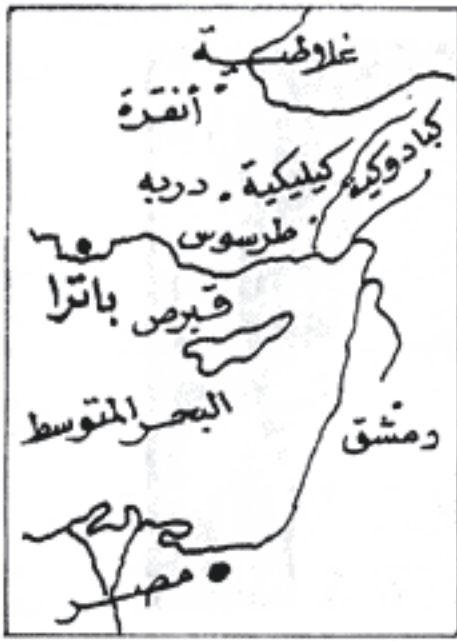 غلاطية
أنقرة
كبادوكية
كيليكية
دربه
طرسوس
باترا
قبرص
البحر المتوسط
دمشق
مصر